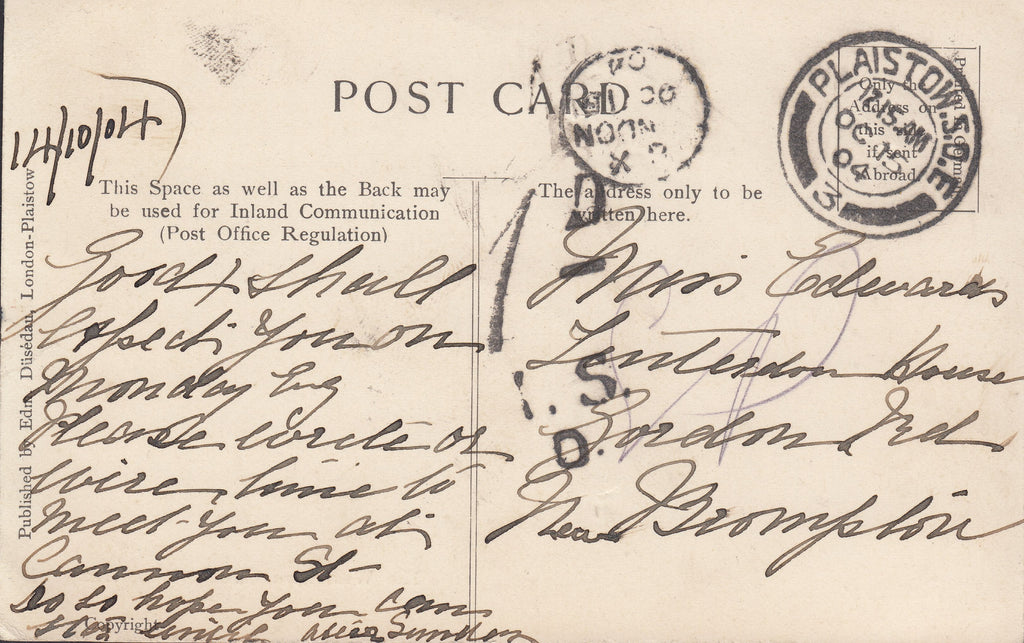 14/10/04
POST CARD
This Space as well as the Back may
be used for Inland Communication
(Post Office Regulation)
The address only to be
written here.
Good & shall
expect you on
Monday Evg
Please write or
wire time to
meet you at
Cannon St
Do so hope you can
stay until after Sunday
Miss Edwards
Tenterdon House
Gordon Rd
New Brompton
PLAISTOW.S.O.E
15 AM
OC 15
04
3
NOON
OC
04
X
1 D
I. S.
O.
Only the
Address on
this side
if sent
Abroad
Printed in Germany
Published by Edm. Düsédau, London-Plaistow
Copyright